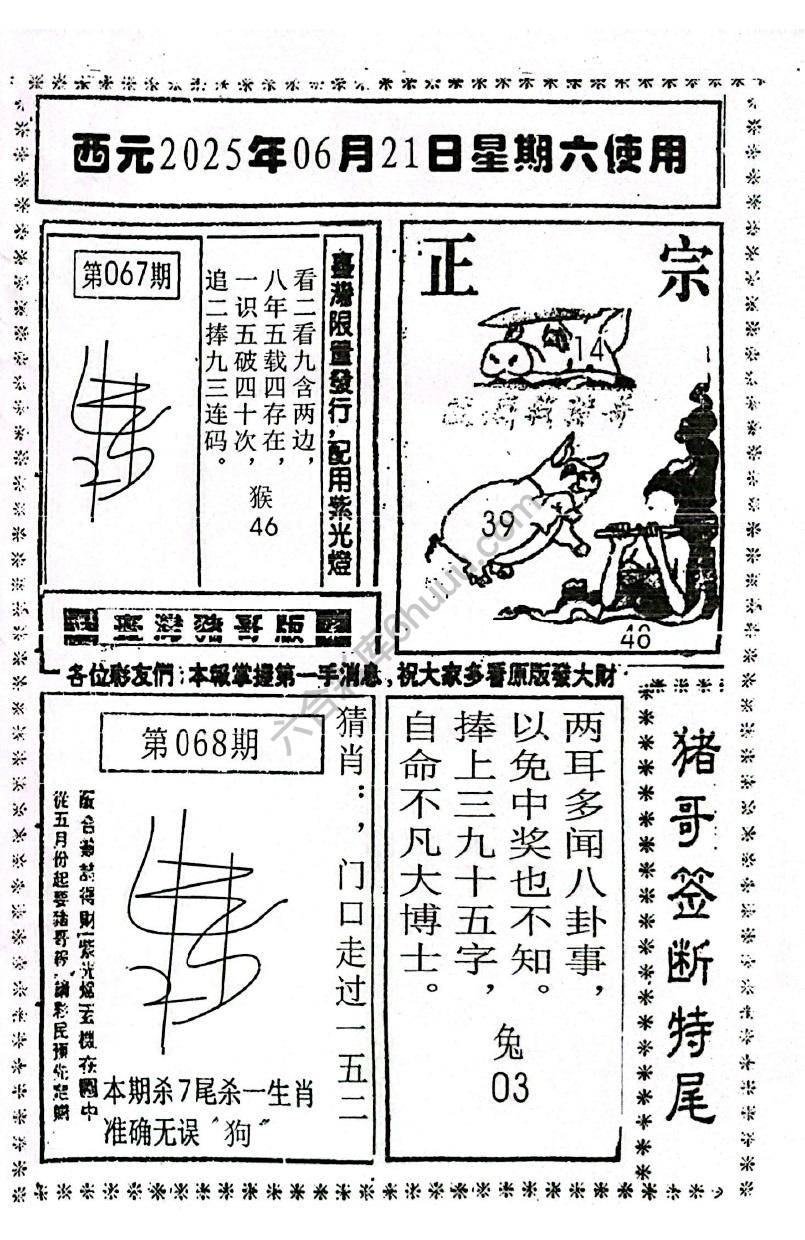 西元2025年06月21日星期六使用
第067期
臺灣限量發行，配用紫光燈
看二看九含两边，
八年五载四存在，
一识五破四十次，
追二捧九三连码。
猴
46
正宗
14
39
46
各位彩友們：本報掌握第一手消息，祝大家多看原版發大財
第068期
猜肖：，门口走过一五二
本期杀7尾杀一生肖
准确无误“狗”
两耳多闻八卦事，
以免中奖也不知。
捧上三九十五字，
自命不凡大博士。
兔
03
猪哥签断特尾